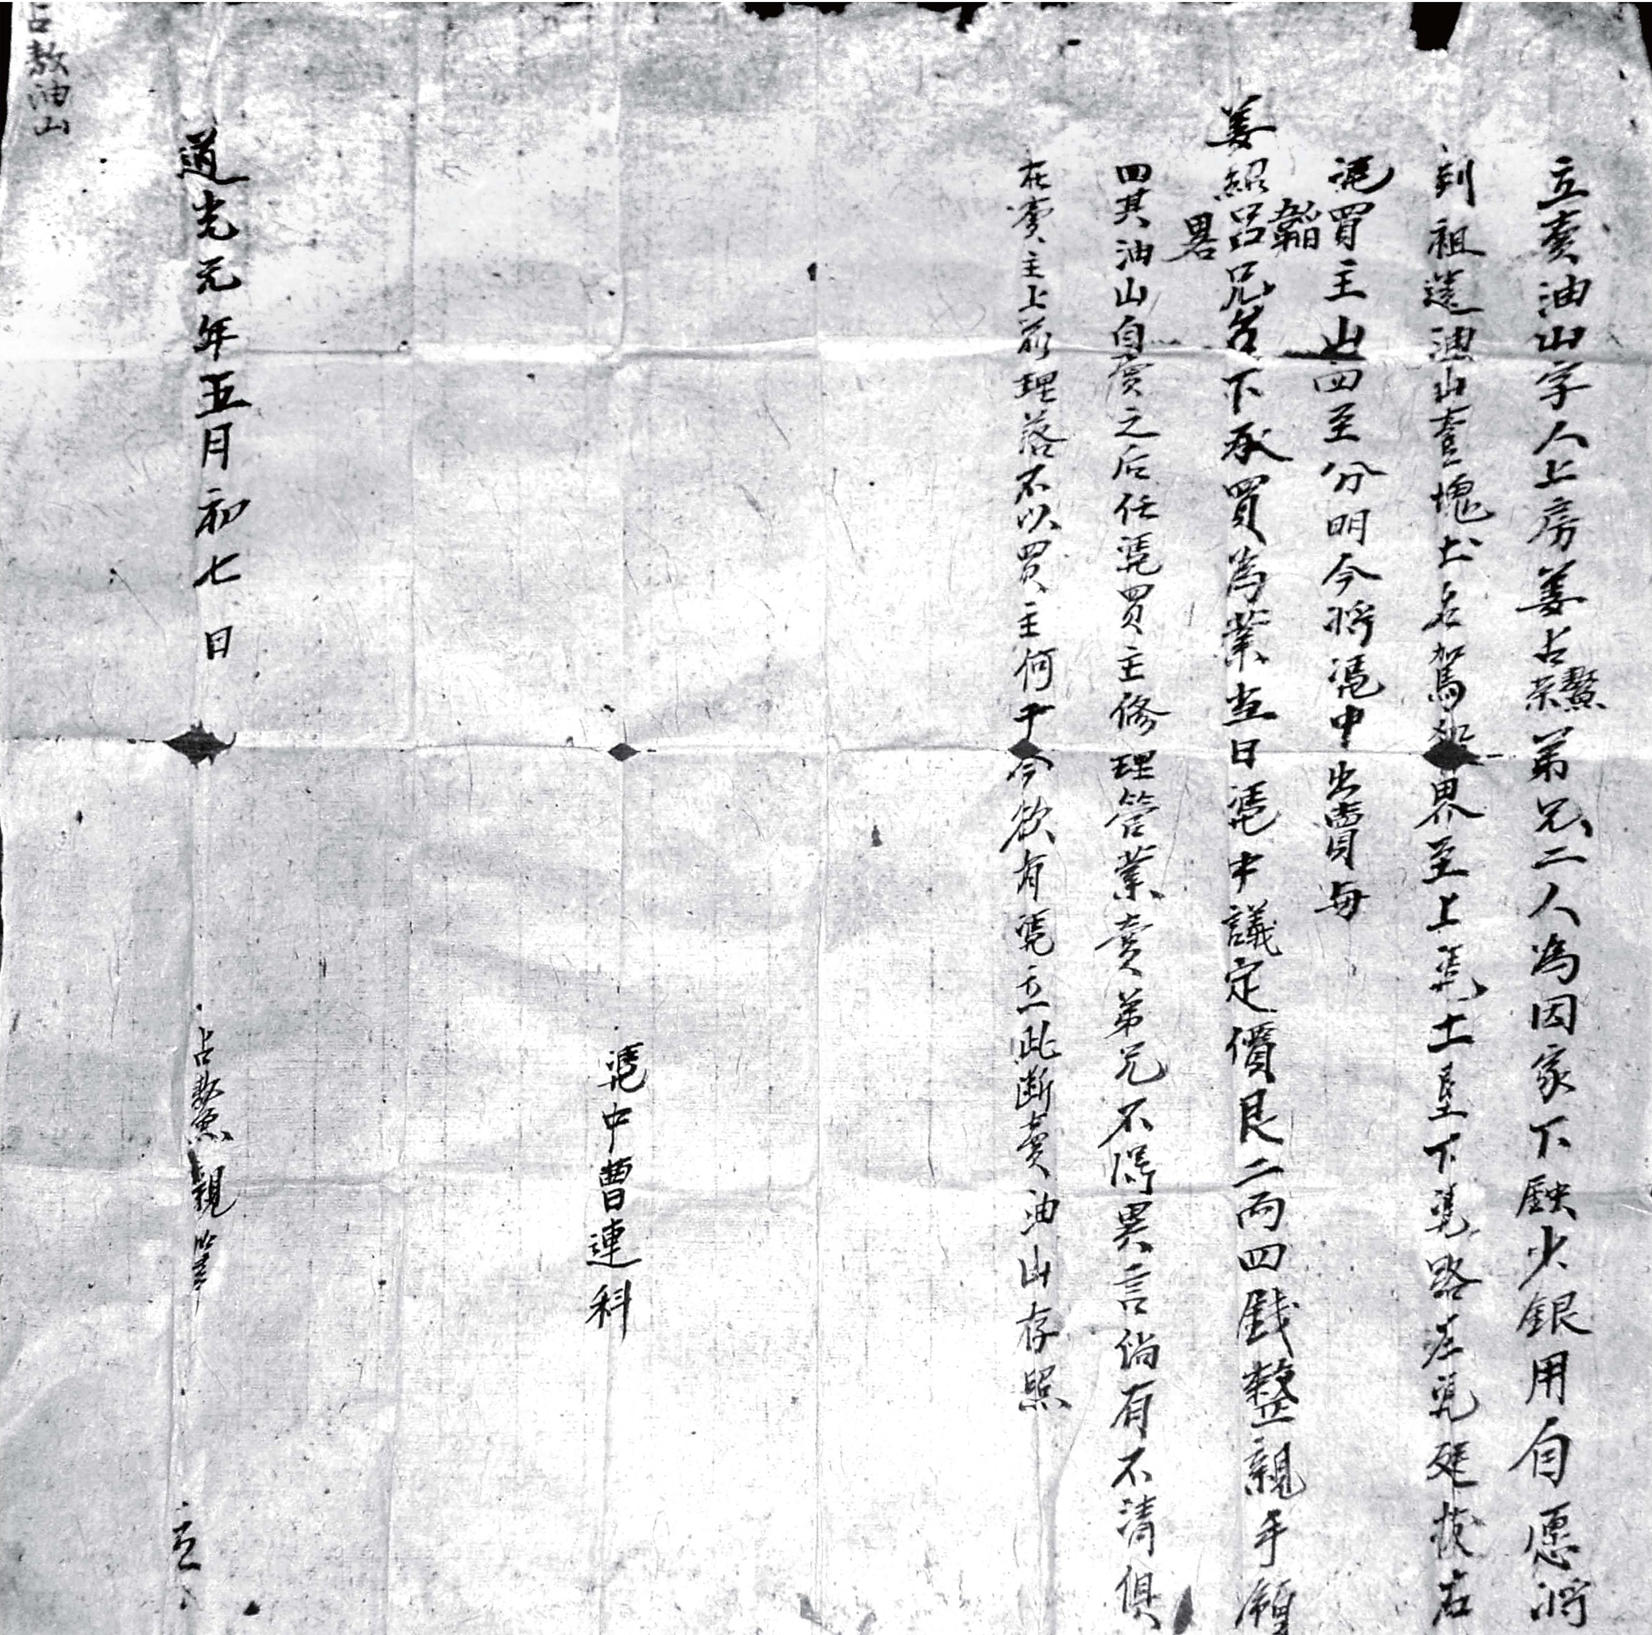 立賣油山字人上房姜占鰲荣弟兄二人為因家下缺少銀用自愿將
到祖遺油山壹塊土名駕 界至上凴土垦下凴路左凴延拔右
凴買主山四至分明今將凴中出賣与
姜紹韜呂畧兄名下承買為業当日凴中議定價艮二两四錢整親手領
回其油山自賣之后任凴買主修理管業賣弟兄不得異言倘有不清俱
在賣主上前理落不以買主何干今欲有凴立此断賣油山存照
凴中曹連科
占鰲親筆
道光元年五月初七日 立
占敖油山